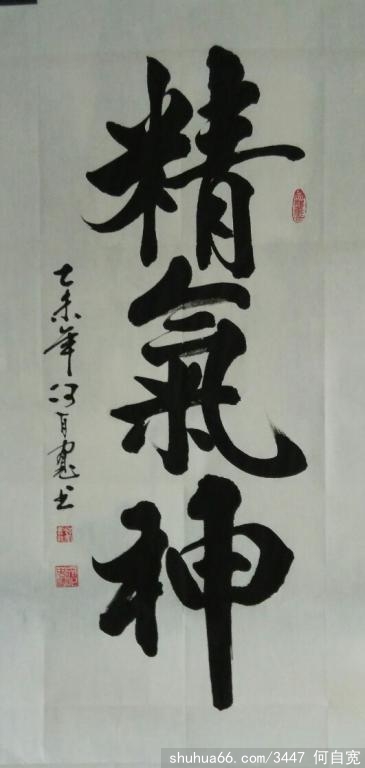 精氣神
乙未年何自寬书
shuhua66.com/3447 何自宽